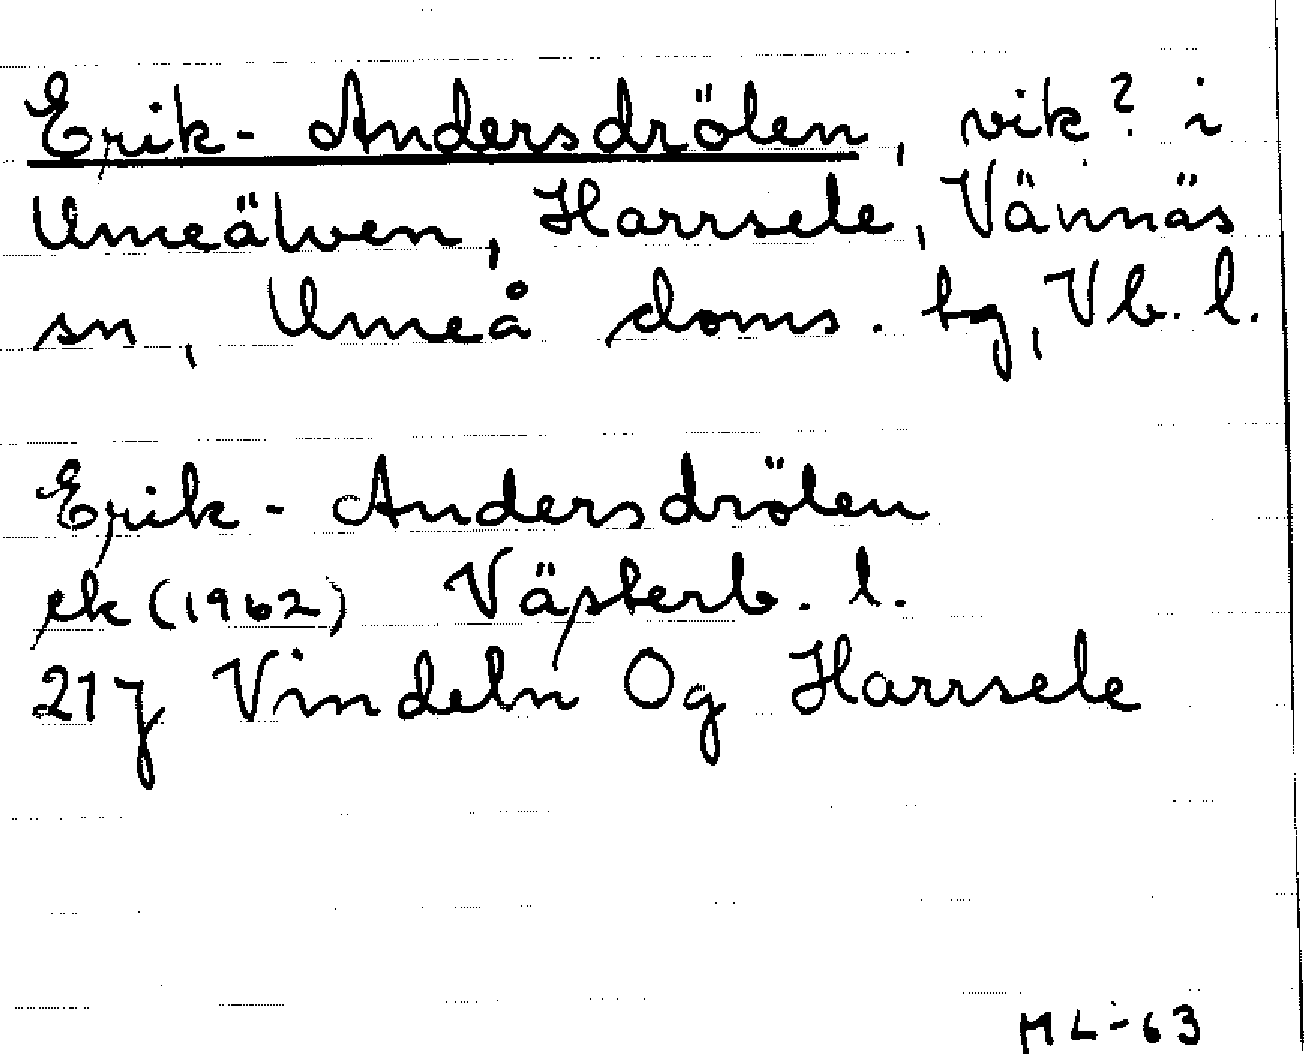 Erik-Andersdrölen, vik? i
Umeälven, Harrsele, Vännäs
sn, Umeå doms. tg, Vb. l.
Erik-Andersdrölen
ek (1962) Västerb. l.
21 J Vindeln Og Harrsele
ML-63